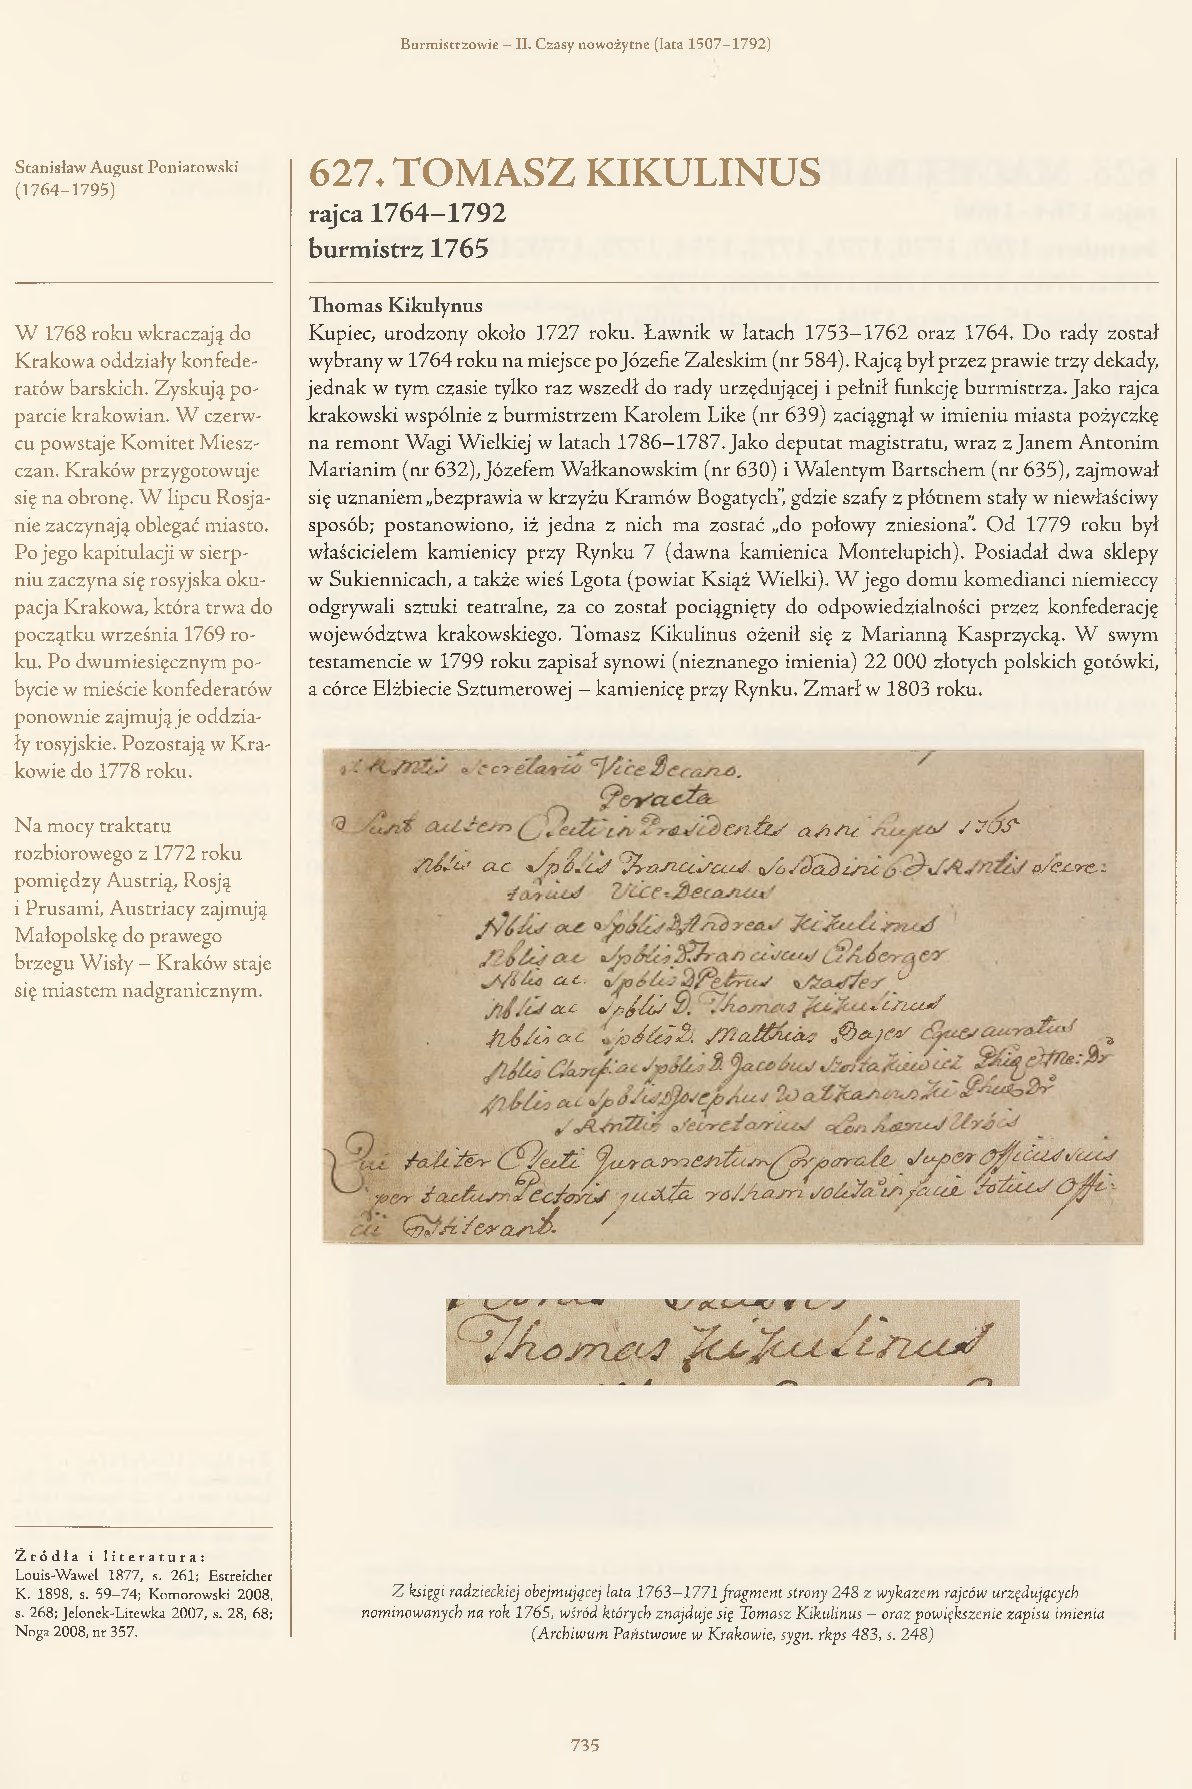 Burmistrzowie – II. Czasy nowożytne (lata 1507–1792)
Stanisław August Poniatowski
(1764–1795)
W 1768 roku wkraczają do
Krakowa oddziały konfede-
ratów barskich. Zyskują po-
parcie krakowian. W czerw-
cu powstaje Komitet Miesz-
czan. Kraków przygotowuje
się na obronę. W lipcu Rosja-
nie zaczynają oblegać miasto.
Po jego kapitulacji w sierp-
niu zaczyna się rosyjska oku-
pacja Krakowa, która trwa do
początku września 1769 ro-
ku. Po dwumiesięcznym po-
bycie w mieście konfederatów
ponownie zajmują je oddzia-
ły rosyjskie. Pozostają w Kra-
kowie do 1778 roku.
Na mocy traktatu
rozbiorowego z 1772 roku
pomiędzy Austrią, Rosją
i Prusami, Austriacy zajmują
Małopolskę do prawego
brzegu Wisły – Kraków staje
się miastem nadgranicznym.
Źródła i literatura:
Louis-Wawel 1877, s. 261; Estreicher
K. 1898, s. 59–74; Komorowski 2008,
s. 268; Jelonek-Litewka 2007, s. 28, 68;
Noga 2008, nr 357.
627. TOMASZ KIKULINUS
rajca 1764–1792
burmistrz 1765
Thomas Kikulynus
Kupiec, urodzony około 1727 roku. Ławnik w latach 1753–1762 oraz 1764. Do rady został
wybrany w 1764 roku na miejsce po Józefie Zaleskim (nr 584). Rajcą był przez prawie trzy dekady,
jednak w tym czasie tylko raz wszedł do rady urzędującej i pełnił funkcję burmistrza. Jako rajca
krakowski wspólnie z burmistrzem Karolem Like (nr 639) zaciągnął w imieniu miasta pożyczkę
na remont Wagi Wielkiej w latach 1786–1787. Jako deputat magistratu, wraz z Janem Antonim
Marianim (nr 632), Józefem Wałkanowskim (nr 630) i Walentym Bartschem (nr 635), zajmował
się uznaniem „bezprawia w krzyżu Kramów Bogatych”, gdzie szafy z płótnem stały w niewłaściwy
sposób; postanowiono, iż jedna z nich ma zostać „do połowy zniesiona”. Od 1779 roku był
właścicielem kamienicy przy Rynku 7 (dawna kamienica Montelupich). Posiadał dwa sklepy
w Sukiennicach, a także wieś Lgota (powiat Książ Wielki). W jego domu komedianci niemieccy
odgrywali sztuki teatralne, za co został pociągnięty do odpowiedzialności przez konfederację
województwa krakowskiego. Tomasz Kikulinus ożenił się z Marianną Kasprzycką. W swym
testamencie w 1799 roku zapisał synowi (nieznanego imienia) 22 000 złotych polskich gotówki,
a córce Elżbiecie Sztumerowej – kamienicę przy Rynku. Zmarł w 1803 roku.
Secretario Vice Decano.
Peracta
Sunt autem Electi in Præsidentes anni hujus 1765
Nblis ac Spblis Franciscus Soldadini Secre:
tarius Vice-Decanus
Nblis ac Spblis D. Andreas Kikulinus
Nblis ac Spblis D. Franciscus
Nblis ac Spblis D Petrus Szaster
Nblis ac Spblis D. Thomas Kikulinus
Nblis ac Spblis D. Matthias Bajer Eques auratus
Nblis ac Spblis D. Jacobus
Nblis ac Spblis D Josephus Walkanowski
Secretarius Urbis
Qui taliter Electi Juramentum Corporale super Officiis suis
per tactum Pectoris juxta rotham solitam in facie totius Offi-
cii
Thomas Kikulinus
Z księgi radzieckiej obejmującej lata 1763–1771 fragment strony 248 z wykazem rajców urzędujących
nominowanych na rok 1765, wśród których znajduje się Tomasz Kikulinus – oraz powiększenie zapisu imienia
(Archiwum Państwowe w Krakowie, sygn. rkps 483, s. 248)
735